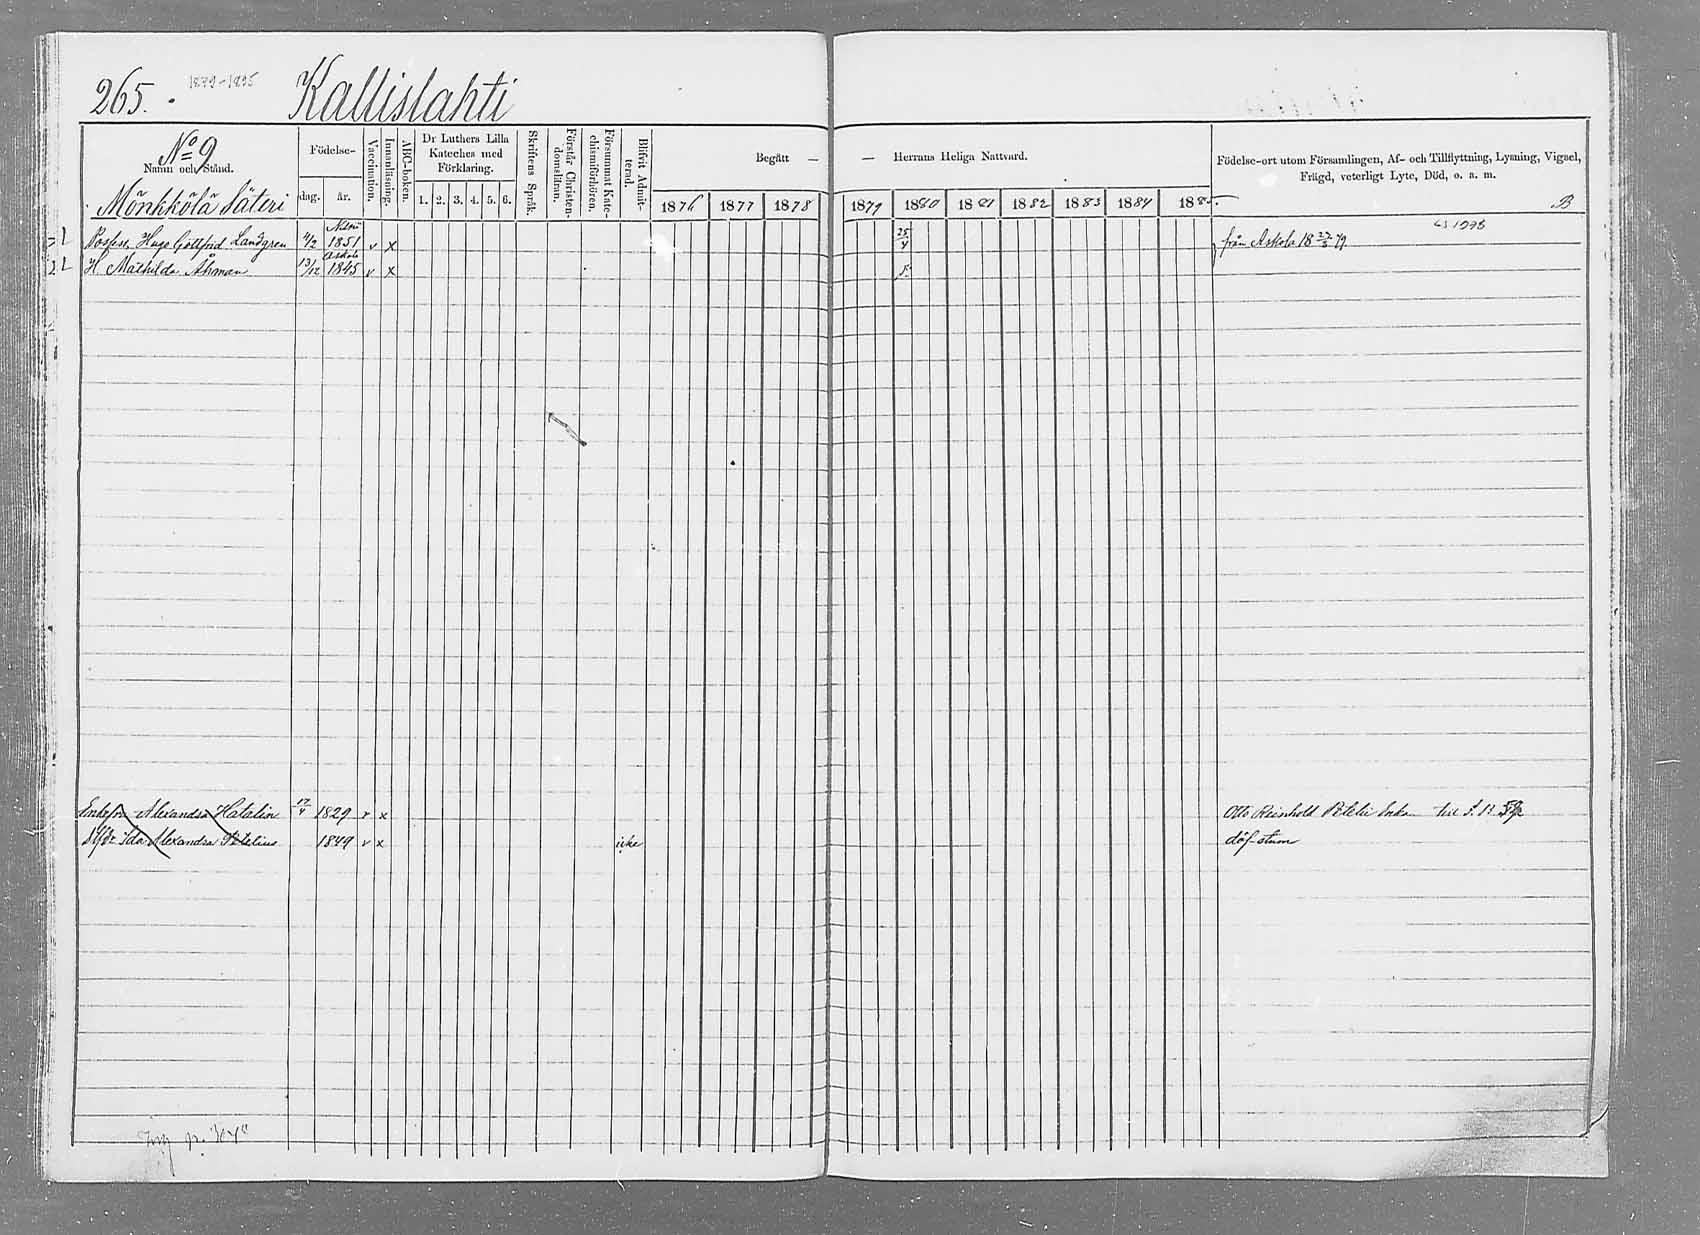 265. 1879-1895 Kallislahti
No 9
Namn och Stånd.
Mönkkölä Säteri
Födelse-
dag. år.
Vaccination.
Innanläsning.
ABC-boken.
Dr Luthers Lilla
Kateches med
Förklaring.
1. 2. 3. 4. 5. 6.
Skriftens Språk.
Förstår Christen-
domsläran.
Försummat Kate-
chismiförhören.
Blifvit Admit-
terad.
Begått — — Herrans Heliga Nattvard.
1876 1877 1878 1879 1880 1881 1882 1883 1884 1885
Födelse-ort utom Församlingen, Af- och Tillflyttning, Lysning, Vigsel,
Frägd, veterligt Lyte, Död, o. a. m.
B
Possess. Hugo Gottfrid Landgren 4/2 1851 v x 25/4 från Askola 18 27/3 79
Askola
H. Mathilda Åhman 13/12 1845 v x
Alexandra Hatalin 17/4 1829 v x Otto Reinhold Enka
Ida Alexandra 1849 v x icke döf-stum